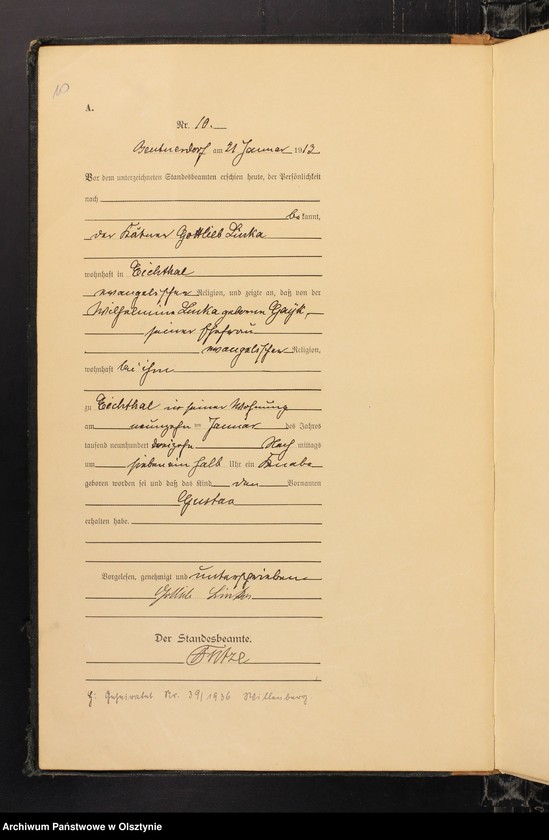 10
A.
Nr. 10.
Beutnerdorf am 21 Januar 1913
Vor dem unterzeichneten Standesbeamten erschien heute, der Persönlichkeit
nach
bekannt,
der Kätner Gottlieb Linka
wohnhaft in Eichthal
evangelischer Religion, und zeigte an, daß von der
Wilhelmine Linka geborene Gayk,
seiner Ehefrau
evangelischer Religion,
wohnhaft bei ihm
zu Eichthal in seiner Wohnung
am neunzehn ten Januar des Jahres
tausend neunhundert dreizehn Nach mittags
um sieben ein halb Uhr ein Knabe
geboren worden sei und daß das Kind den Vornamen
Gustav
erhalten habe.
Vorgelesen, genehmigt und unterschrieben
Gottlieb Linka
Der Standesbeamte.
Geheiratet Nr. 39/1936 Willenberg
Archiwum Państwowe w Olsztynie